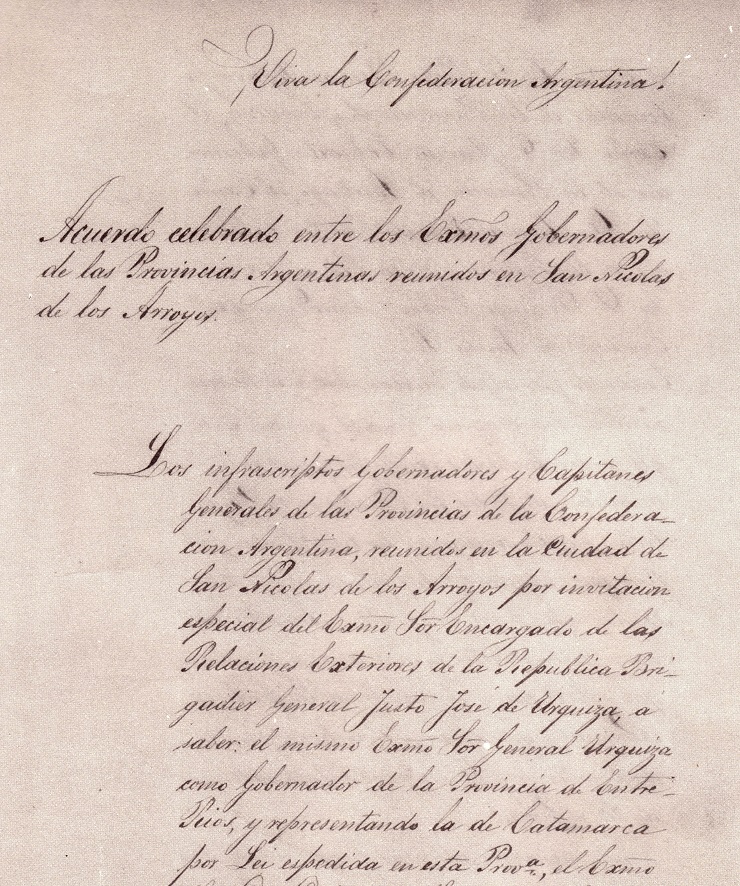 Viva la Confederacion Argentina!
Acuerdo celebrado entre los Exmõs Gobernadores
de las Provincias Argentinas reunidos en San Nicolas
de los Arroyos.
Los infrascriptos Gobernadores y Capitanes
Generales de las Provincias de la Confedera-
cion Argentina, reunidos en la Ciudad de
San Nicolas de los Arroyos por invitacion
especial del Exmõ Sor Encargado de las
Relaciones Exteriores de la Republica Bri-
gadier General Justo José de Urquiza, á
saber: el mismo Exmõ Sor General Urquiza
como Gobernador de la Provincia de Entre-
Rios, y representando la de Catamarca
por Lei espedida en esta Provª, el Exmo